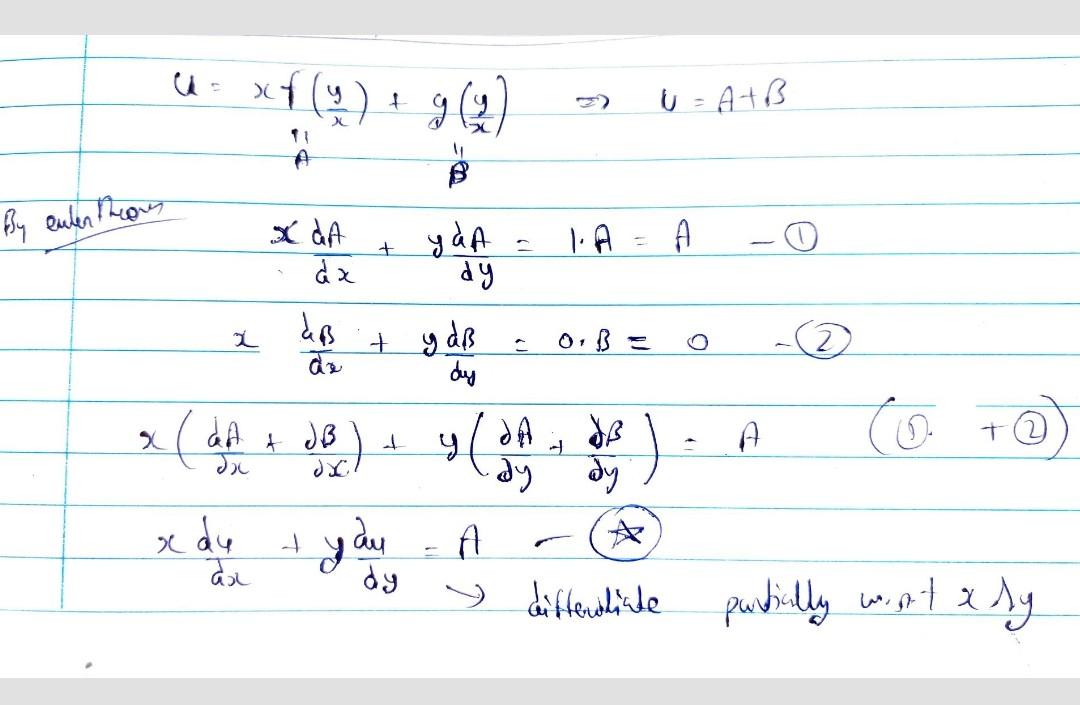 u = x f(y/x) + g(y/x) => U = A+B
" "
A B
By euler Theorem
x dA/dx + y dA/dy = 1.A = A - ①
x dB/dx + y dB/dy = 0.B = 0 - ②
x(∂A/∂x + ∂B/∂x) + y(∂A/∂y + ∂B/∂y) = A (① + ②)
x du/dx + y du/dy = A - ☆
→ differentiate partially w.r.t x & y